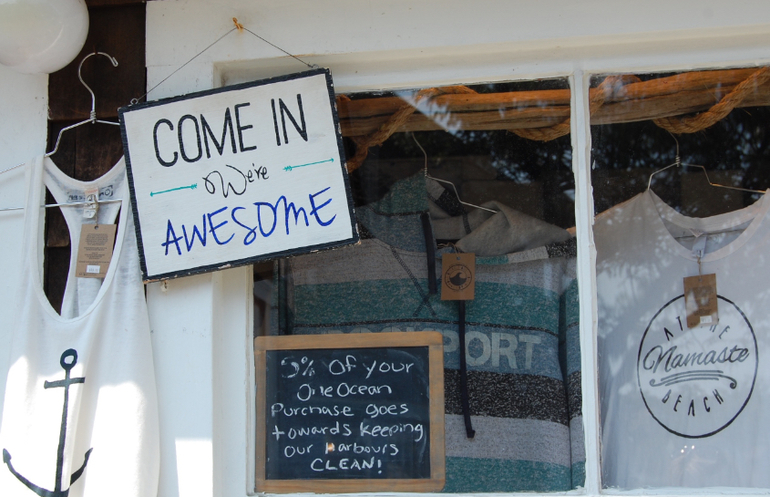 COME IN
We're
AWESOME
5% Of your
One Ocean
Purchase goes
towards keeping
our Harbours
CLEAN!
PORT
AT THE
Namaste
BEACH